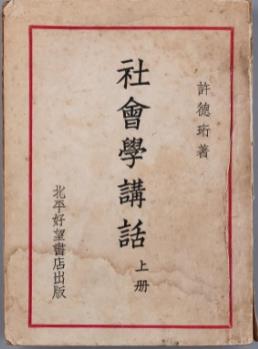 許德珩著
社會學講話 上册
北平好望書店出版